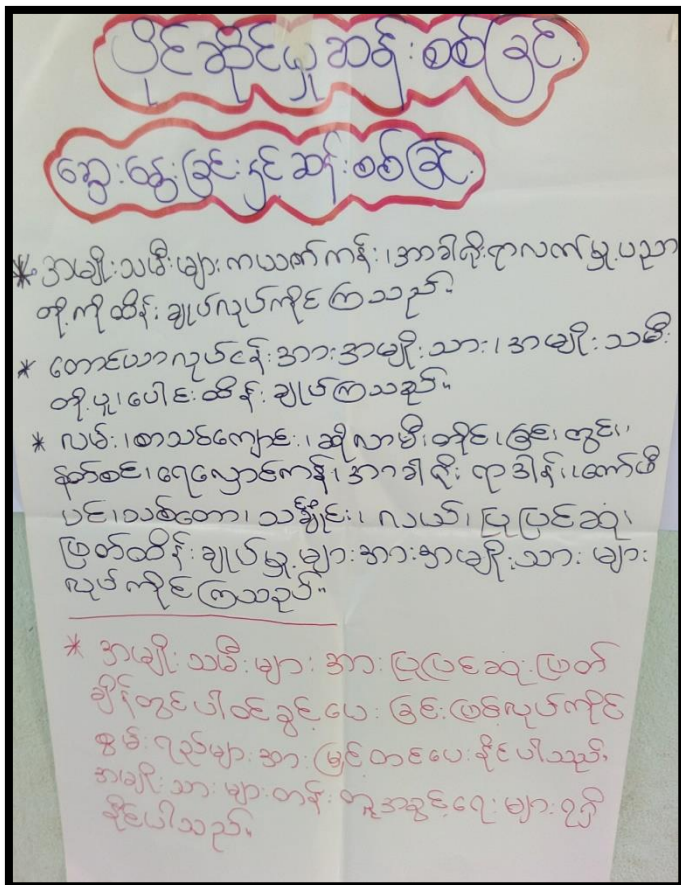 ပိုင်ဆိုင်မှုဆန်းစစ်ခြင်း
ဆွေးနွေးခြင်းနှင့်ဆန်းစစ်ခြင်း
* အမျိုးသမီးများကယက်ကန်း၊အာခါငိုးရာလက်မှုပညာ
တို့ကိုထိန်းချုပ်လုပ်ကိုင်ကြသည်။
* တောင်ယာလုပ်ငန်းအားအမျိုးသား၊အမျိုးသမီး
တို့ပူးပေါင်းထိန်းချုပ်ကြသည်။
* လမ်း၊စာသင်ကျောင်း၊ဆိုလာမီးတိုင်၊ခြင်း၊တွင်း၊
နတ်စင်၊ရေလှောင်ကန်၊အာခါငိုးရာဒါန်း၊ကော်ဖီ
ပင်၊သစ်တော၊သင်္ချိုင်း၊လယ်၊ပြုပြင်ဆုံး
ဖြတ်ထိန်းချုပ်မှုများအားအမျိုးသားများ
လုပ်ကိုင်ကြသည်။
* အမျိုးသမီးများအားပြုပြင်ဆုံးဖြတ်
ချိန်တွင်ပါဝင်ခွင့်ပေးခြင်းဖြစ်လုပ်ကိုင်
စွမ်းရည်များအားမြှင့်တင်ပေးနိုင်ပါသည်။
အမျိုးသားများတန်းတူအခွင့်ရေးများရရှိ
နိုင်ပါသည်။